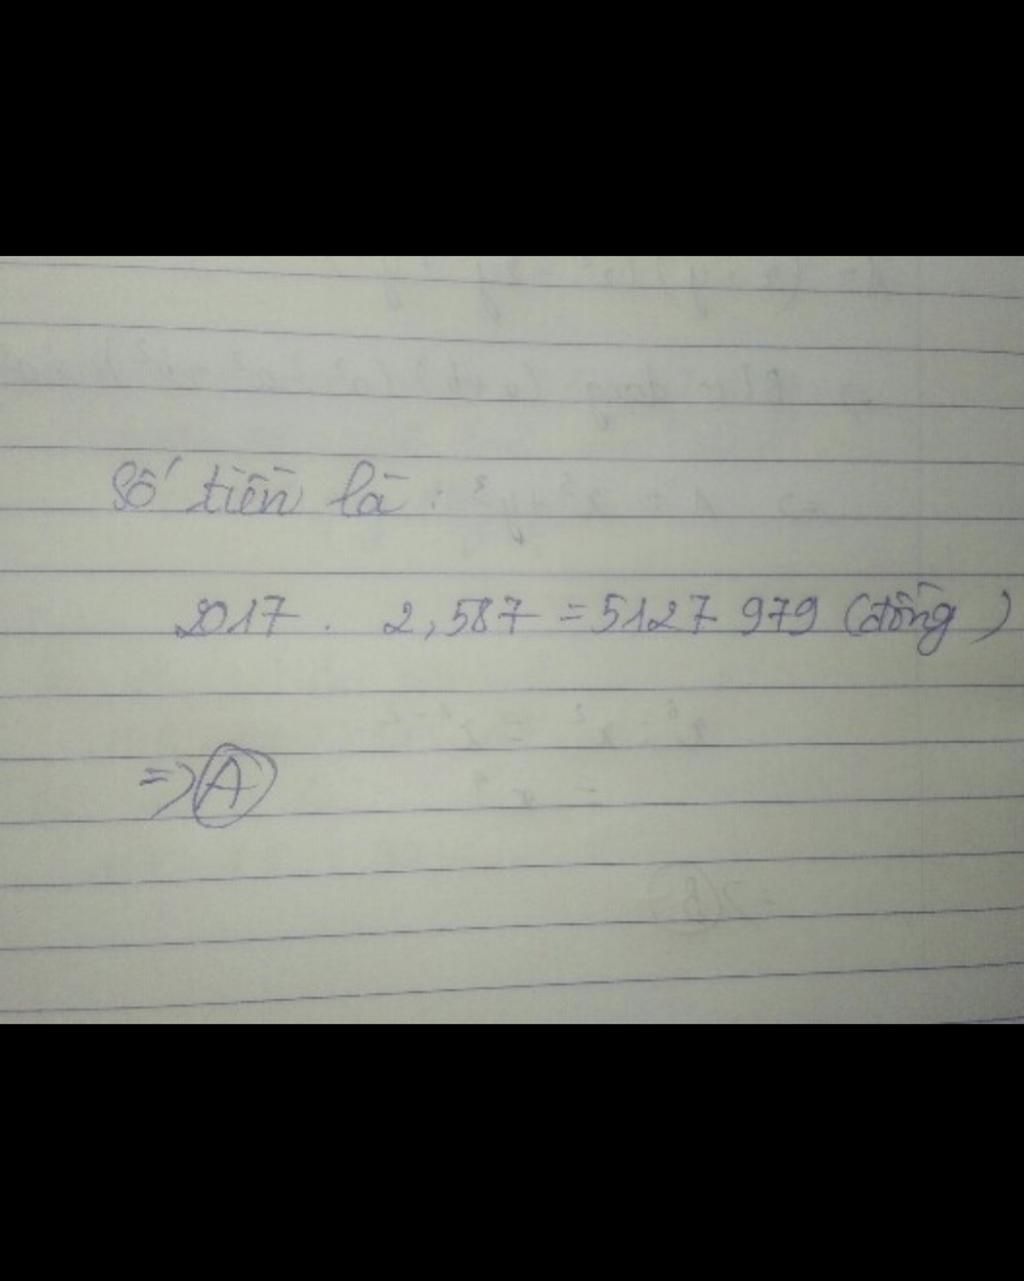 Số tiền là :
2017 . 2,587 = 5127 979 (đồng)
=> A